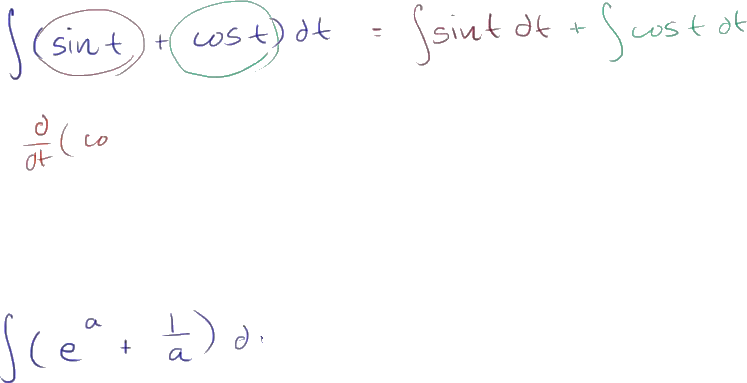 ∫(sin t + cos t) dt = ∫sin t dt + ∫cos t dt
d/dt (co
∫(e^a + 1/a) d